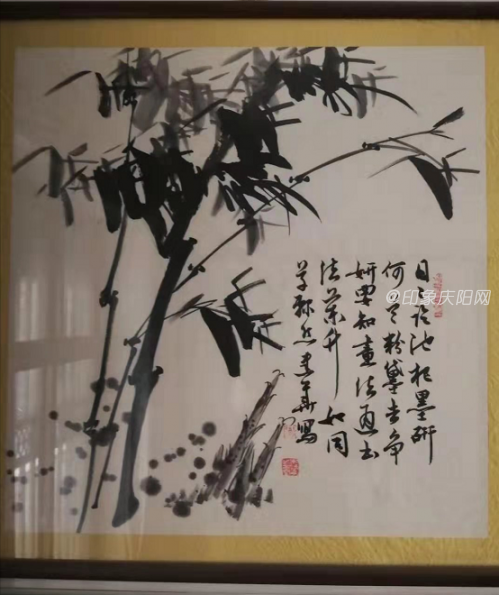 日日临池把墨研
何曾粉黛去争
妍要知画法通书
法兰竹如同
草隶然 写
@印象庆阳网